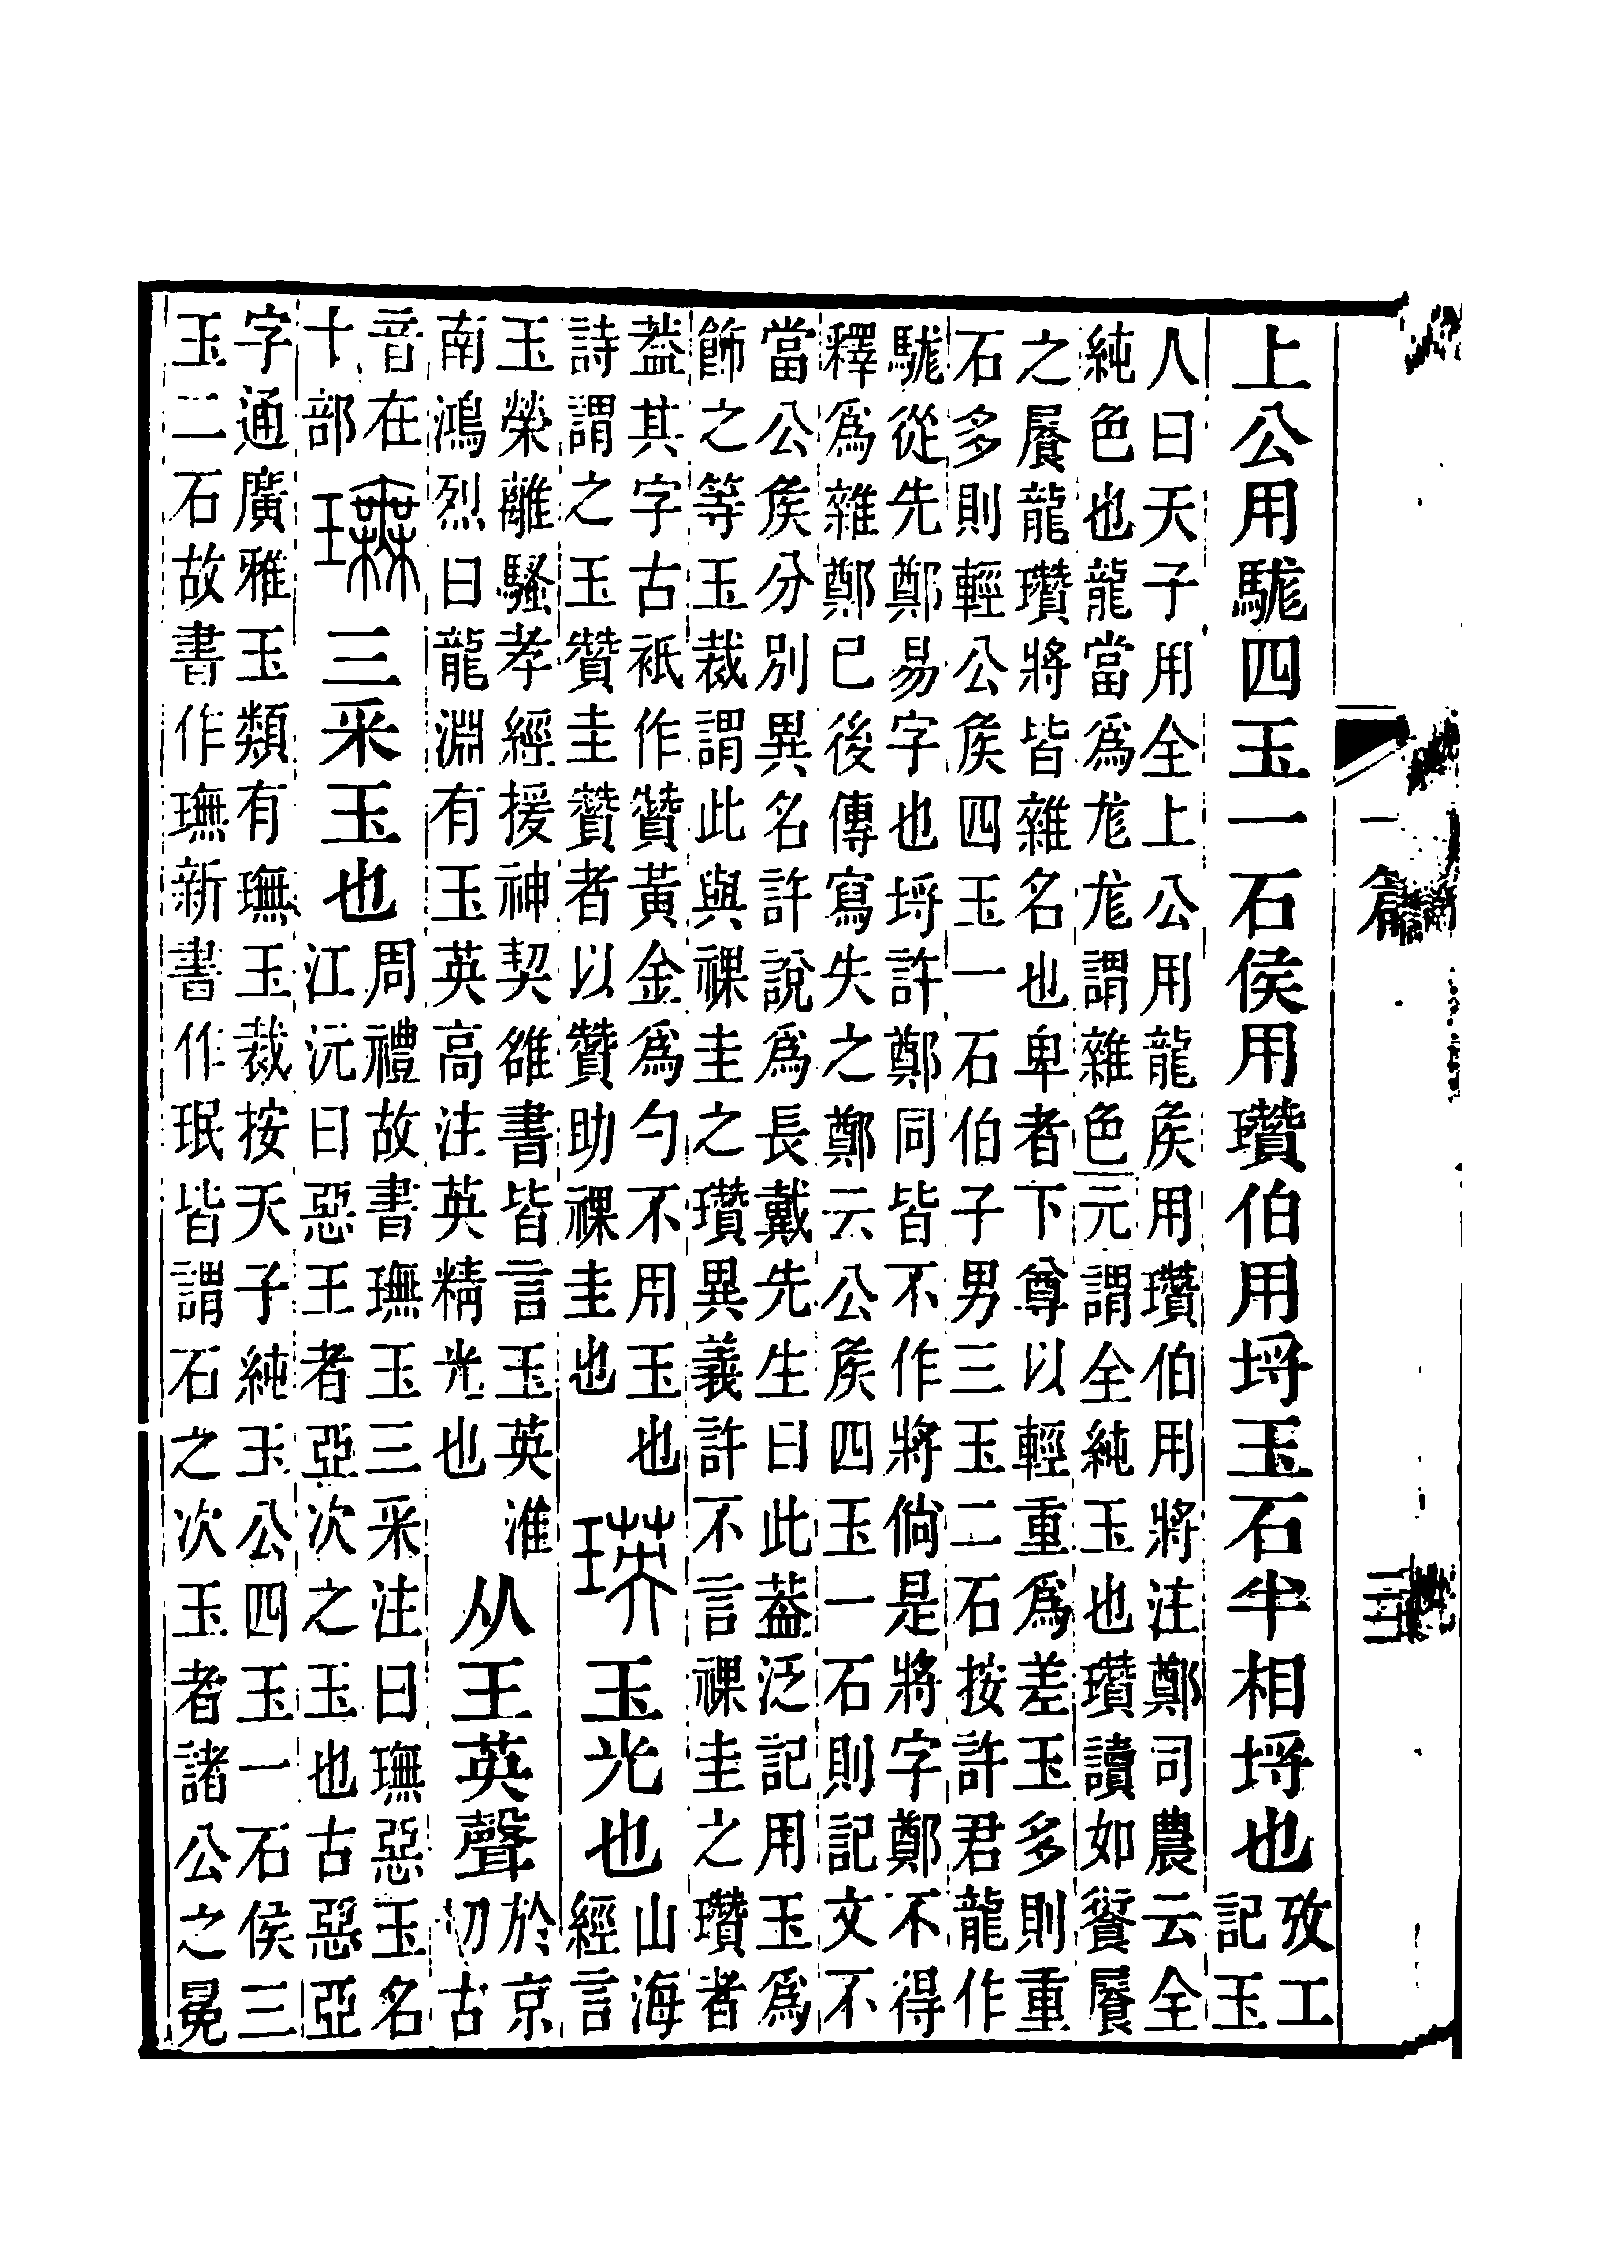 一篇
上公用駹四玉一石侯用瓚伯用埒玉石半相埒也攷工
記玉
人曰天子用全上公用龍矦用瓚伯用將注鄭司農云全
純色也龍當爲尨尨謂雜色元謂全純玉也瓚讀如餐𡳐
之𡳐龍瓚將皆雜名也卑者下尊以輕重爲差玉多則重
石多則輕公矦四玉一石伯子男三玉二石按許君龍作
駹從先鄭易字也埒許鄭同皆不作將倘是將字鄭不得
釋爲雜鄭已後傳寫失之鄭云公矦四玉一石則記文不
當公矦分別異名許說爲長戴先生曰此葢泛記用玉爲
飾之等玉裁謂此與祼圭之瓚異義許不言祼圭之瓚者
葢其字古衹作贊黃金爲勺不用玉也
詩謂之玉贊圭贊者以贊助祼圭也
瑛玉光也山海
經言
玉榮離騷孝經援神契雒書皆言玉英淮
南鴻烈曰龍淵有玉英高注英精光也
从王英聲於京
切古
音在
十部
璑三采玉也周禮故書璑玉三采注曰璑惡玉名
江沅曰惡王者亞次之玉也古惡亞
字通廣雅玉類有璑玉裁按天子純玉公四玉一石侯三
玉二石故書作璑新書作珉皆謂石之次玉者諸公之冕